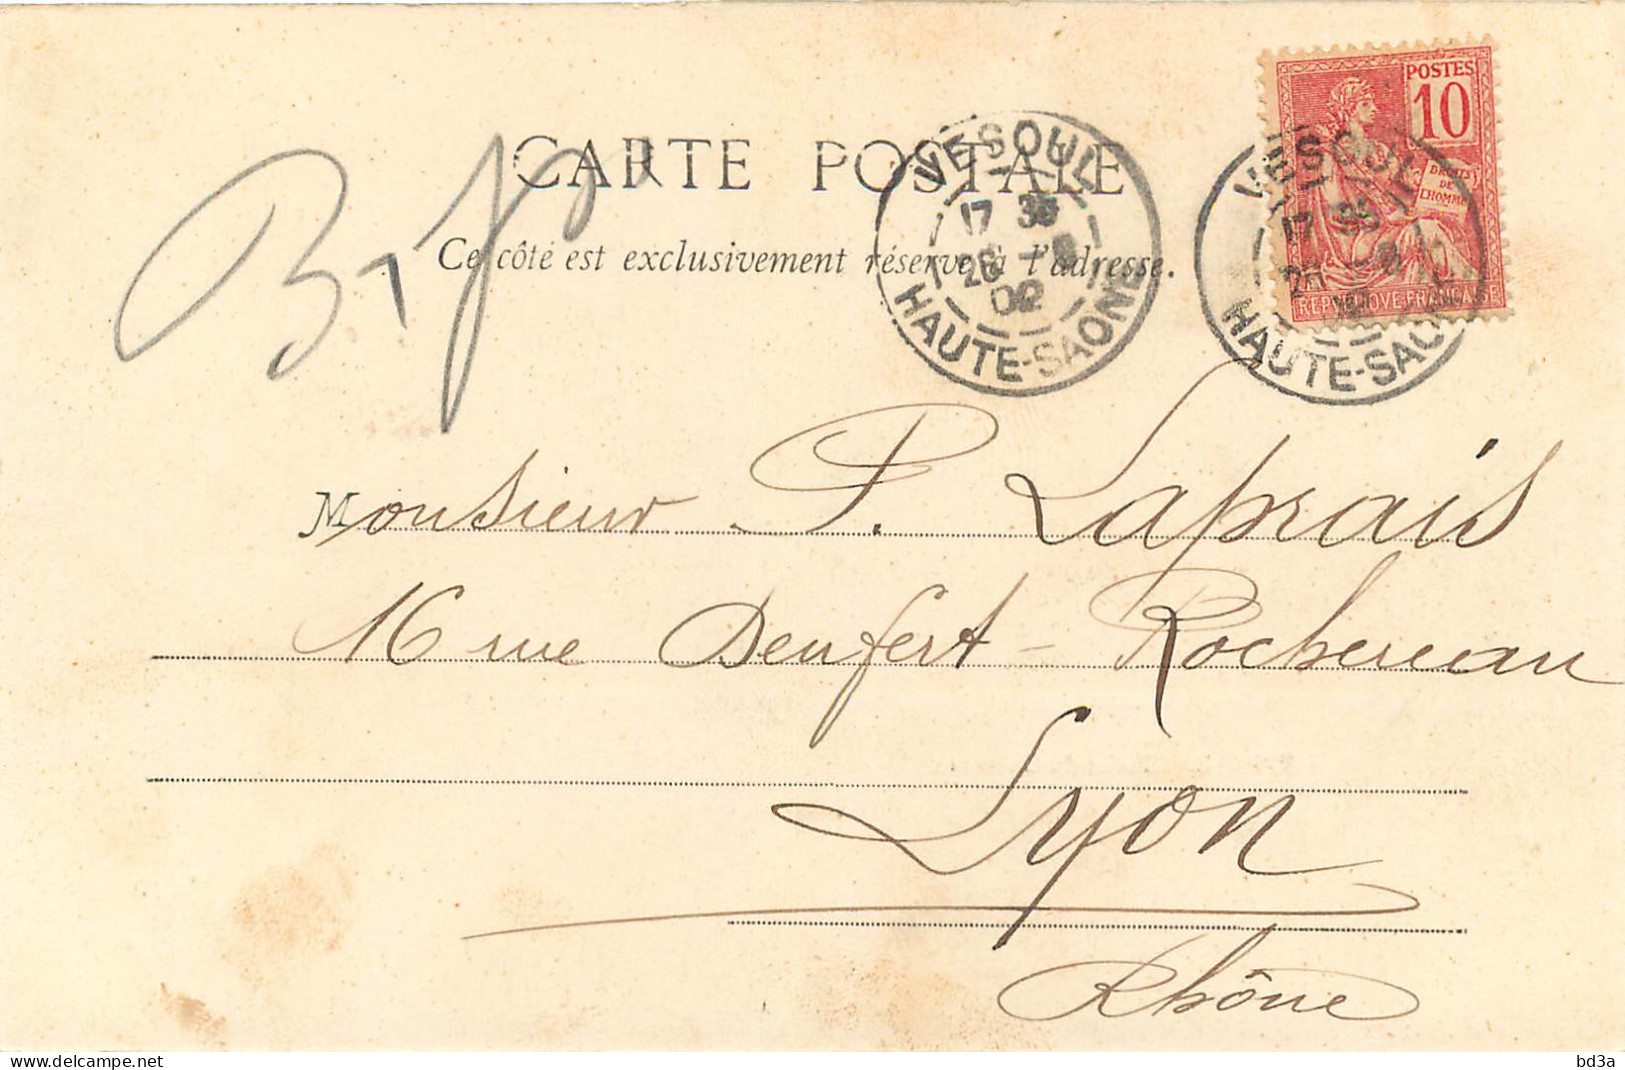 CARTE POSTALE
Ce côté est exclusivement réservé à l'adresse.
VESOUL
17 35
26 - 8
02
HAUTE-SAONE
POSTES
10
DROITS
DE
L'HOMME
REPUBLIQUE FRANÇAISE
VESOUL
17 35
26 8
HAUTE-SAO
Monsieur P. Laprais
16 rue Denfert-Rochereau
Lyon
Rhône
bd3a